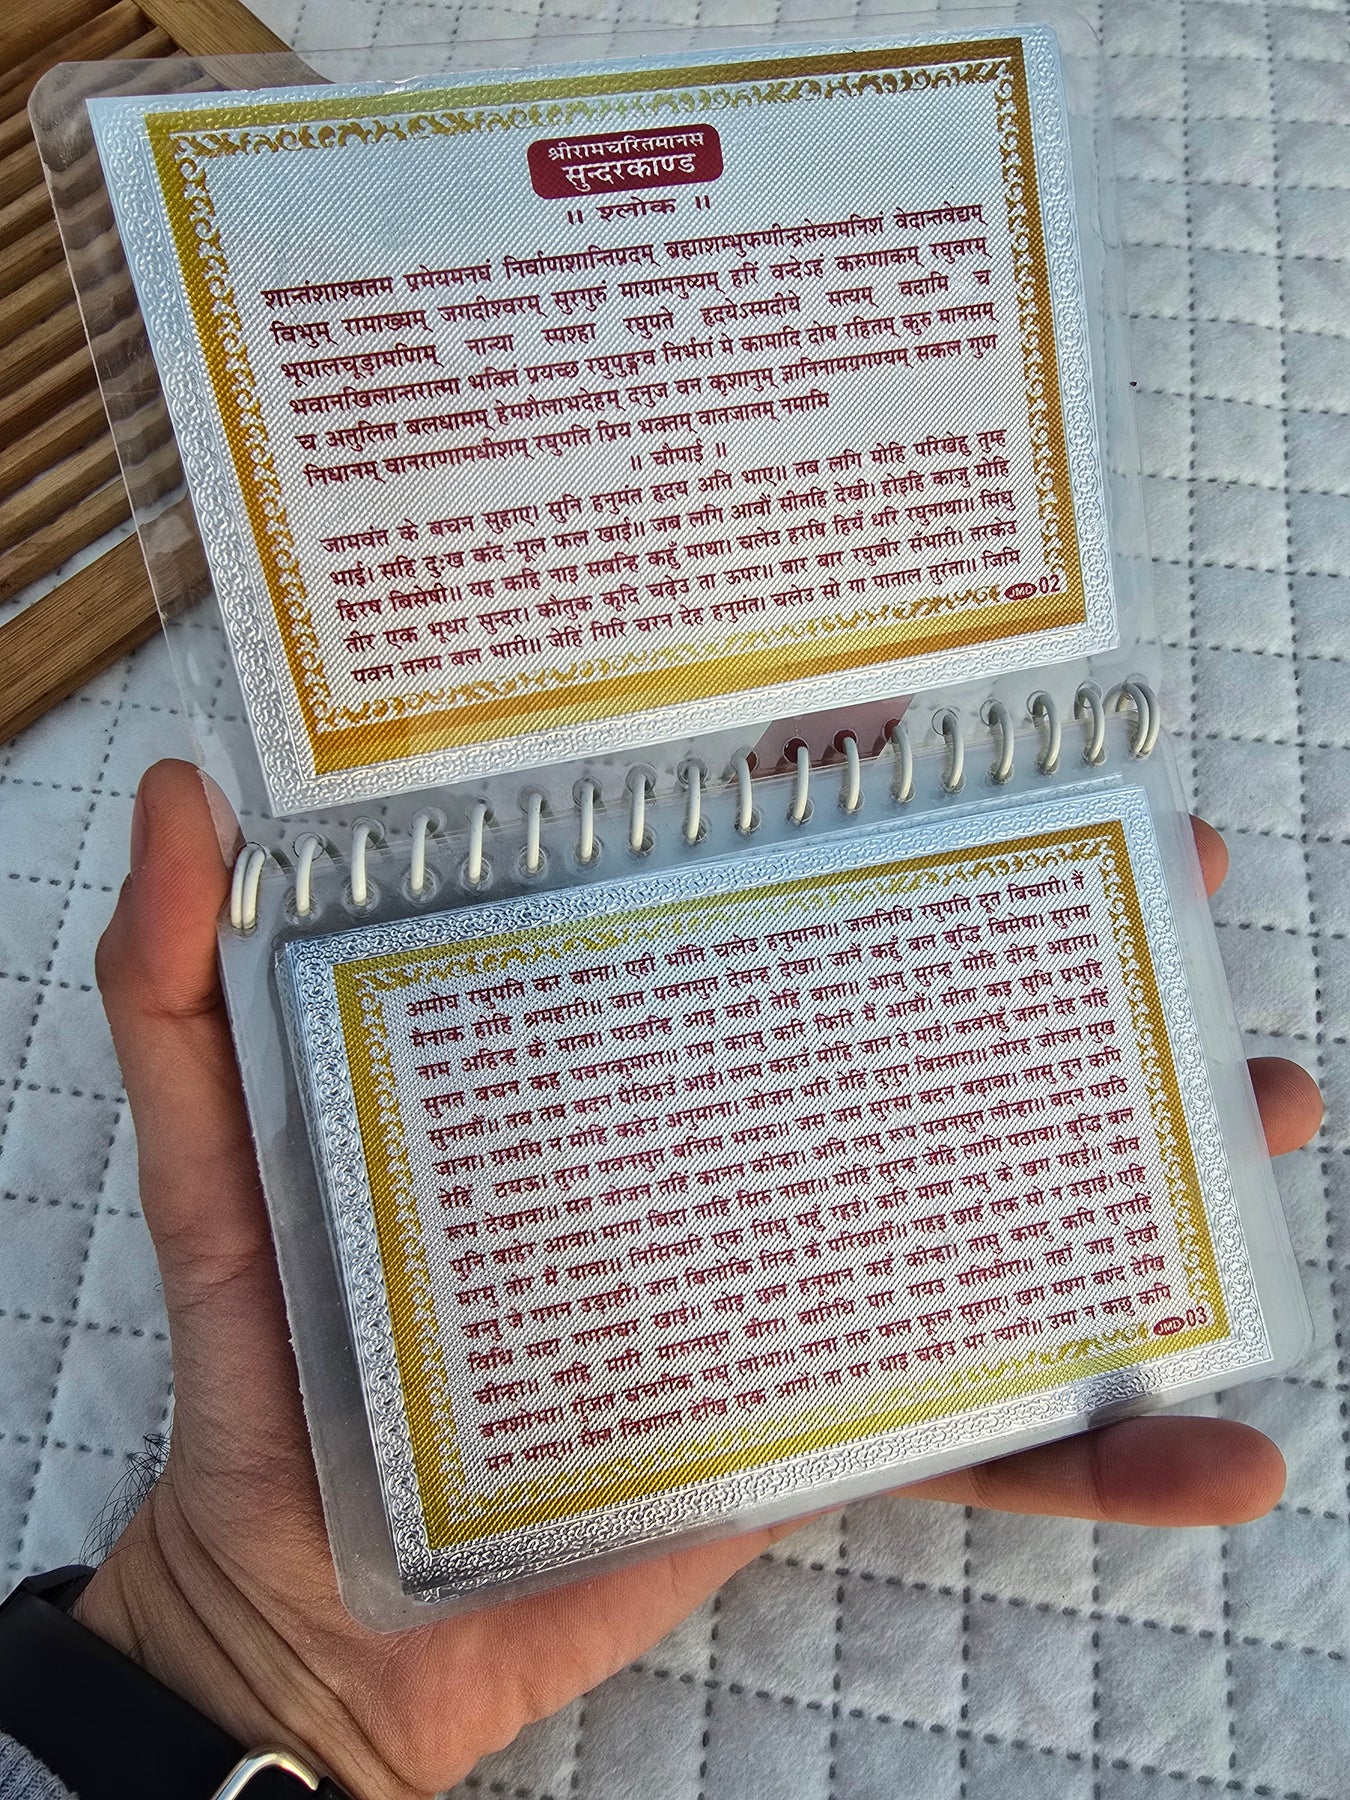 श्रीरामचरितमानस
सुन्दरकाण्ड
॥ श्लोक ॥
शान्तंशाश्वतम प्रमेयमनघं निर्वाणशान्तिप्रदम् ब्रह्माशम्भुफणीन्द्रसेव्यमनिशं वेदान्तवेद्यम्
विभुम् रामाख्यम् जगदीश्वरम् सुरगुरुं मायामनुष्यम् हरिं वन्देऽहं करुणाकम् रघुवरम्
भूपालचूड़ामणिम् नान्या स्पश्हा रघुपते हृदयेऽस्मदीये सत्यम् वदामि च
भवानखिलान्तरात्मा भक्तिं प्रयच्छ रघुपुङ्गव निर्भरां मे कामादि दोष रहितम् कुरु मानसम्
च अतुलित बलधामम् हेमशैलाभदेहम् दनुज वन कृशानुम् ज्ञानिनामग्रगण्यम् सकल गुण
निधानम् वानराणामधीशम् रघुपति प्रिय भक्तम् वातजातम् नमामि
॥ चौपाई ॥
जामवंत के बचन सुहाए। सुनि हनुमंत हृदय अति भाए॥ तब लगि मोहि परिखेहु तुम्ह
भाई। सहि दुःख कंद-मूल फल खाई॥ जब लगि आवौं सीतहि देखी। होइहि काजु मोहि
हिरष बिसेषी॥ यह कहि नाइ सबन्हि कहुँ माथा। चलेउ हरषि हियँ धरि रघुनाथा॥ सिंधु
तीर एक भूधर सुन्दर। कौतुक कूदि चढ़ेउ ता ऊपर॥ बार बार रघुबीर सँभारी। तरकेउ
पवन तनय बल भारी॥ जेहिं गिरि चरन देह हनुमंत। चलेउ सो गा पाताल तुरंता॥ जिमि
JMD 02
अमोघ रघुपति कर बाना। एही भाँति चलेउ हनुमाना॥ जलनिधि रघुपति दूत बिचारी। तैं
मैनाक होहि श्रमहारी॥ जात पवनसुत देवन्ह देखा। जानैं कहुँ बल बुद्धि बिसेषा। सुरसा
नाम अहिन्ह कै माता। पठइन्हि आइ कही तेहिं बाता॥ आजु सुरन्ह मोहि दीन्ह अहारा।
सुनत बचन कह पवनकुमारा॥ राम काजु करि फिरि मैं आवौं। सीता कइ सुधि प्रभुहि
सुनावौं॥ तब तव बदन पैठिहउं आई। सत्य कहउं मोहि जान दे माई। कवनेहुँ जतन देह नहिं
जाना। ग्रससि न मोहि कहेउ अनुमाना। जोजन भरि तेहिं दुगुन बिस्तारा॥ सोरह जोजन मुख
तेहिं ठयऊ। तुरत पवनसुत बत्तिस भयऊ॥ जस जस सुरसा बदन बढ़ावा। तासु दून कपि
रूप देखावा॥ सत जोजन तहिं कानन कीन्हा। अति लघु रूप पवनसुत लीन्हा॥ बदन पइठि
पुनि बाहेर आवा। मागा बिदा ताहि सिरु नावा॥ मोहि सुरन्ह जेहि लागि पठावा। बुद्धि बल
मरमु तोर मैं पावा॥ निसिचरि एक सिंधु महुँ रहई। करि माया नभु के खग गहई॥ जीव
जन्तु जे गगन उड़ाहीं। जल बिलोकि तिन्ह कै परिछाहीं॥ गहइ छाहँ एक सो न उड़ाई। एहि
विधि सदा गगनचर खाई॥ सोइ छल हनूमान कहँ कीन्हा। तासु कपट कपि तुरतहिं
चीन्हा॥ ताहि मारि मारुतसुत बीरा। बारिधि पार गयउ मतिधीरा॥ तहाँ जाइ देखी
बनशोभा। गुंजत चंचरीक मधु लोभा॥ नाना तरु फल फूल सुहाए। खग देखि
मन भाए॥ सैल विशाल देखि एक आगे। ता पर धाइ चढ़ेउ भर त्यागें॥ उमा न कछु कपि
JMD 03